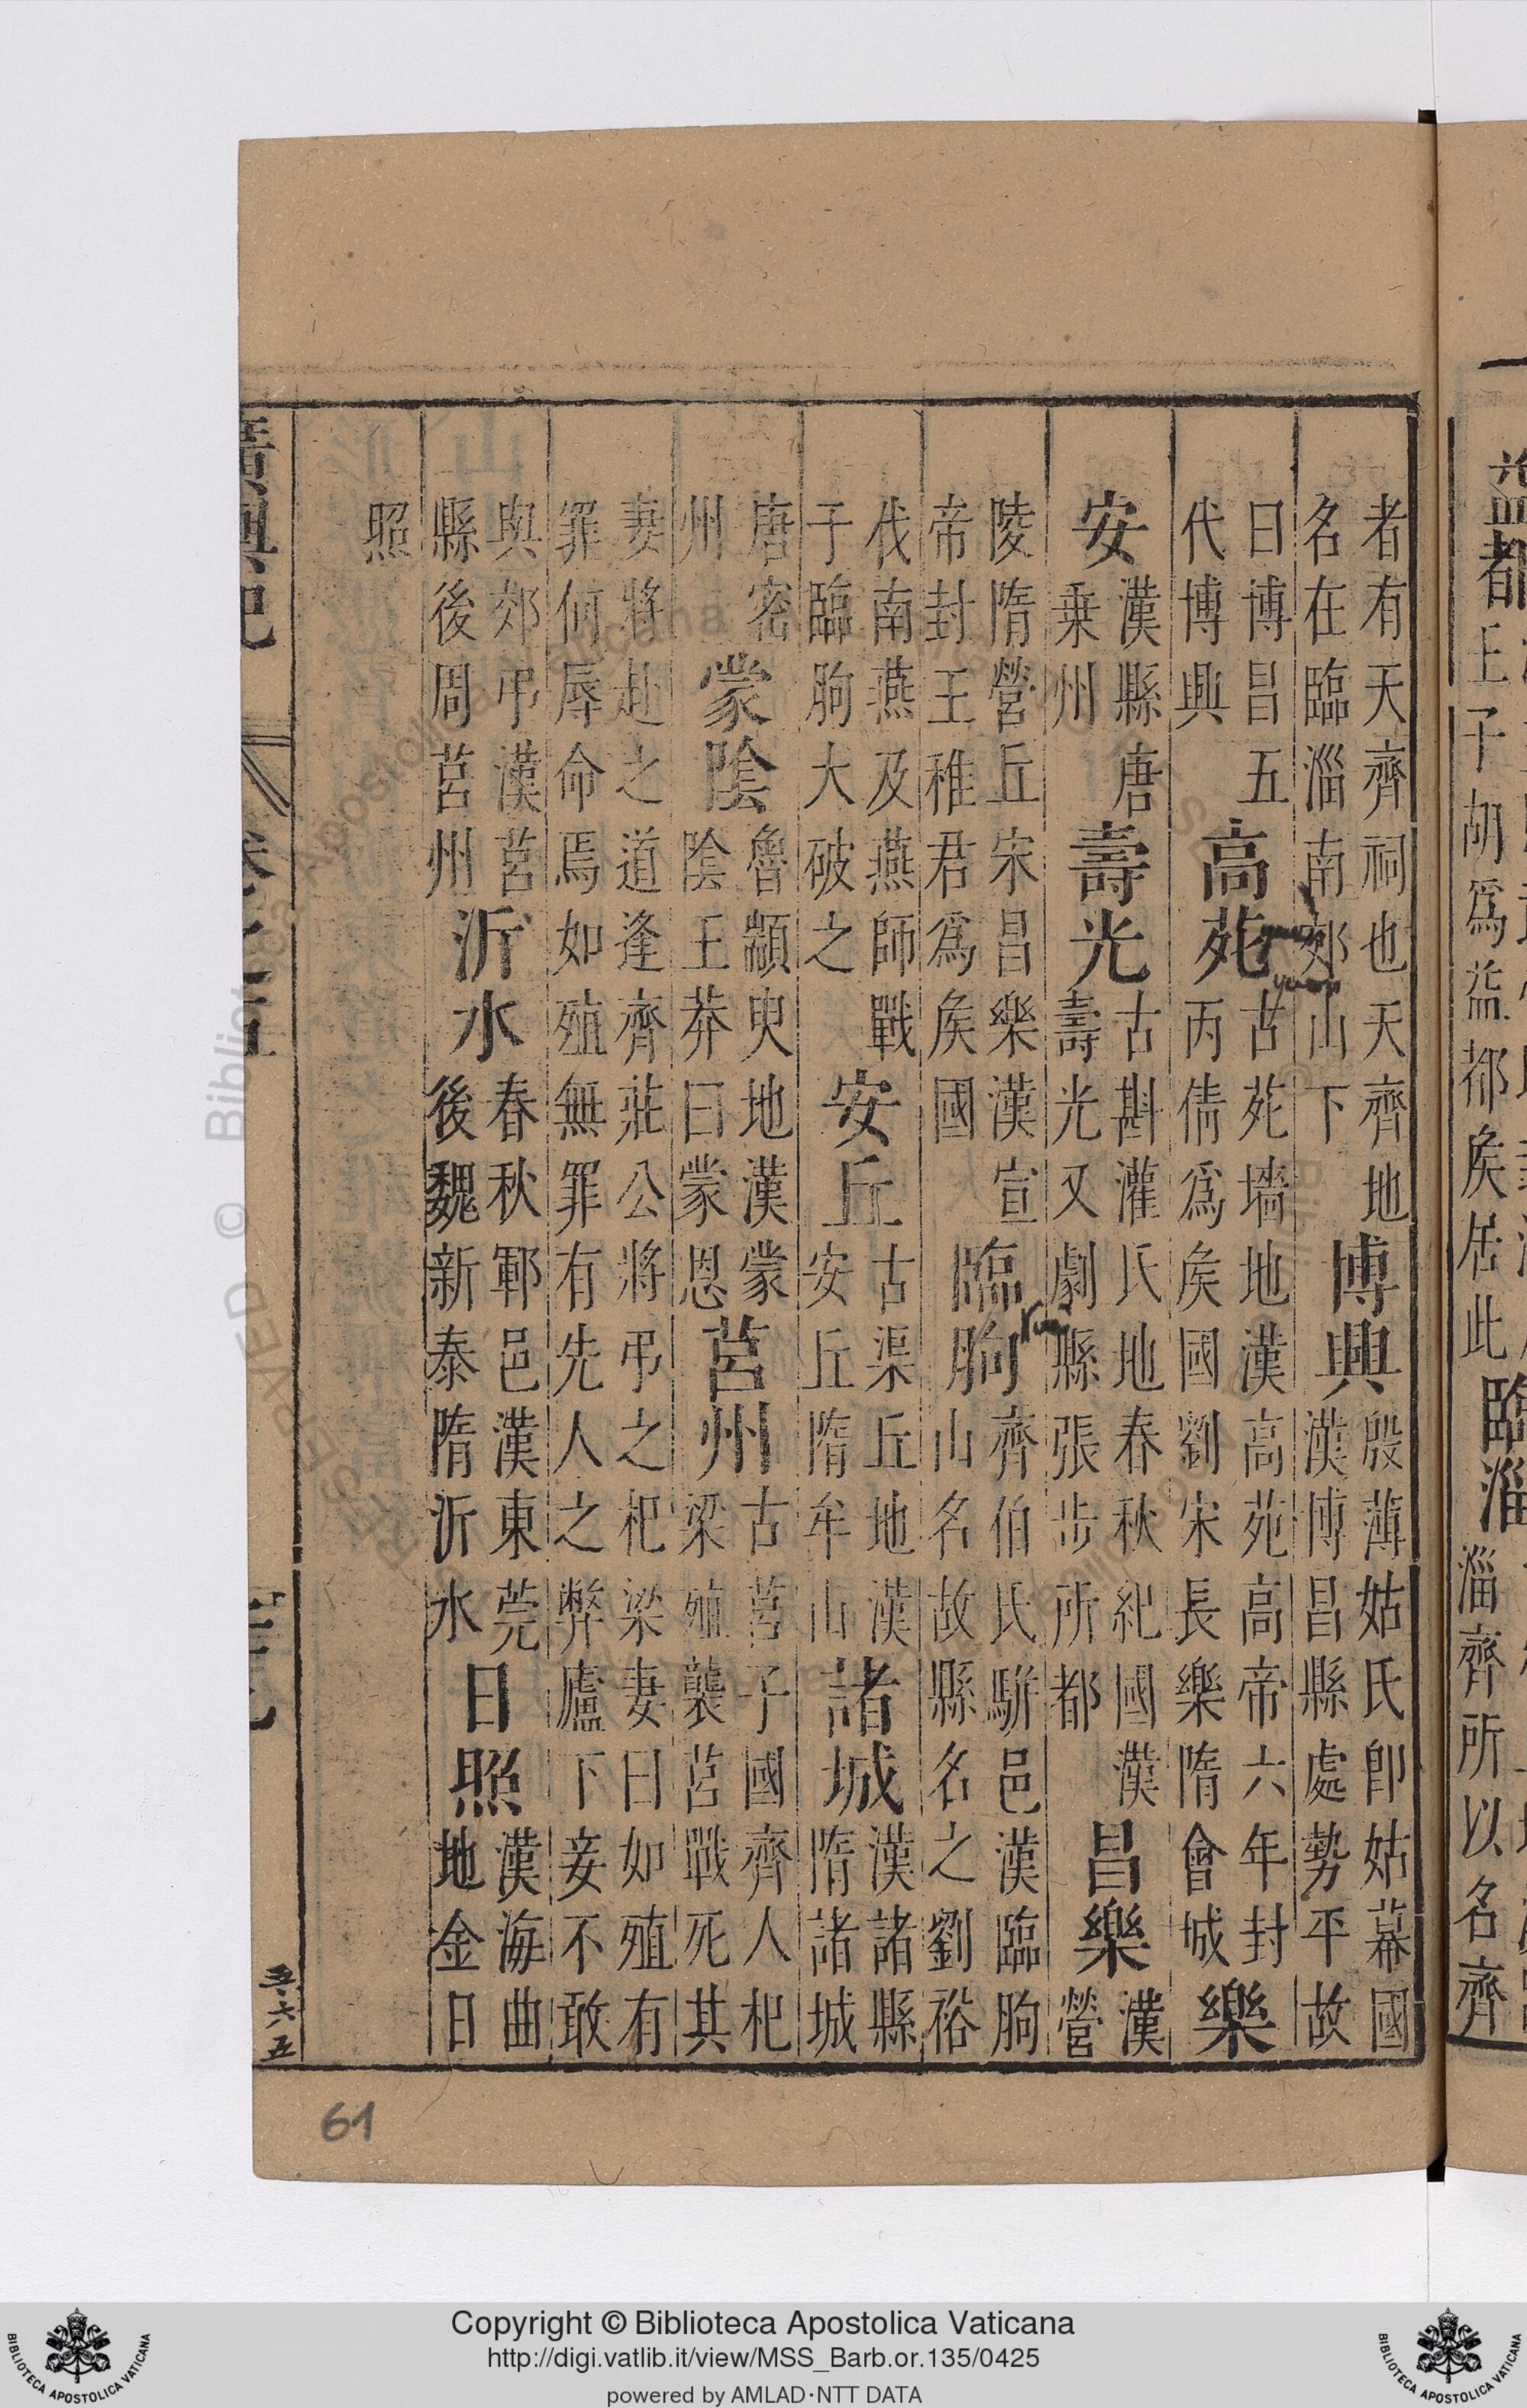 益都
王子胡爲益都矦居此
臨淄
淄齊所以名齊
者有天齊祠也天齊地
名在臨淄南郊山下
博興
殷薄姑氏卽姑幕國
漢博昌縣處勢平故
曰博昌五
代博興
高苑
古苑墻地漢高苑高帝六年封
丙倩爲矦國劉宋長樂隋會城
樂
安
漢縣唐
乗州
壽光
古斟灌氏地春秋紀國漢
壽光又劇縣張步所都
昌樂
漢
營
陵隋營丘宋昌樂漢宣
帝封王稚君爲矦國
臨朐
齊伯氏駢邑漢臨朐
山名故縣名之劉裕
伐南燕及燕師戰
于臨朐大破之
安丘
古渠丘地漢
安丘隋牟山
諸城
漢諸縣
隋諸城
唐密
州
蒙陰
魯顓臾地漢蒙
陰王莽曰蒙恩
莒州
古莒子國齊人杞
梁殖襲莒戰死其
妻將赴之道逢齊莊公將弔之杞梁妻曰如殖有
罪何辱命焉如殖無罪有先人之弊廬下妾不敢
與郊弔漢莒
縣後周莒州
沂水
春秋鄆邑漢東莞
後魏新泰隋沂水
日照
漢海曲
地金日
照
廣輿記
五六五
61
Copyright © Biblioteca Apostolica Vaticana
http://digi.vatlib.it/view/MSS_Barb.or.135/0425
powered by AMLAD·NTT DATA